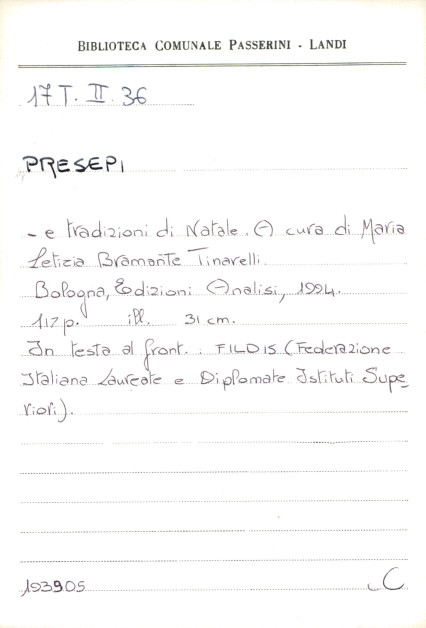 BIBLIOTECA COMUNALE PASSERINI - LANDI
17 T. II. 36
PRESEPI
- e tradizioni di Natale. A cura di Maria
Letizia Bramante Tinarelli.
Bologna, Edizioni Analisi, 1994.
117 p. ill. 31 cm.
In testa al front.: FILDIS (Federazione
Italiana Laureate e Diplomate Istituti Supe
riori).
193905
C